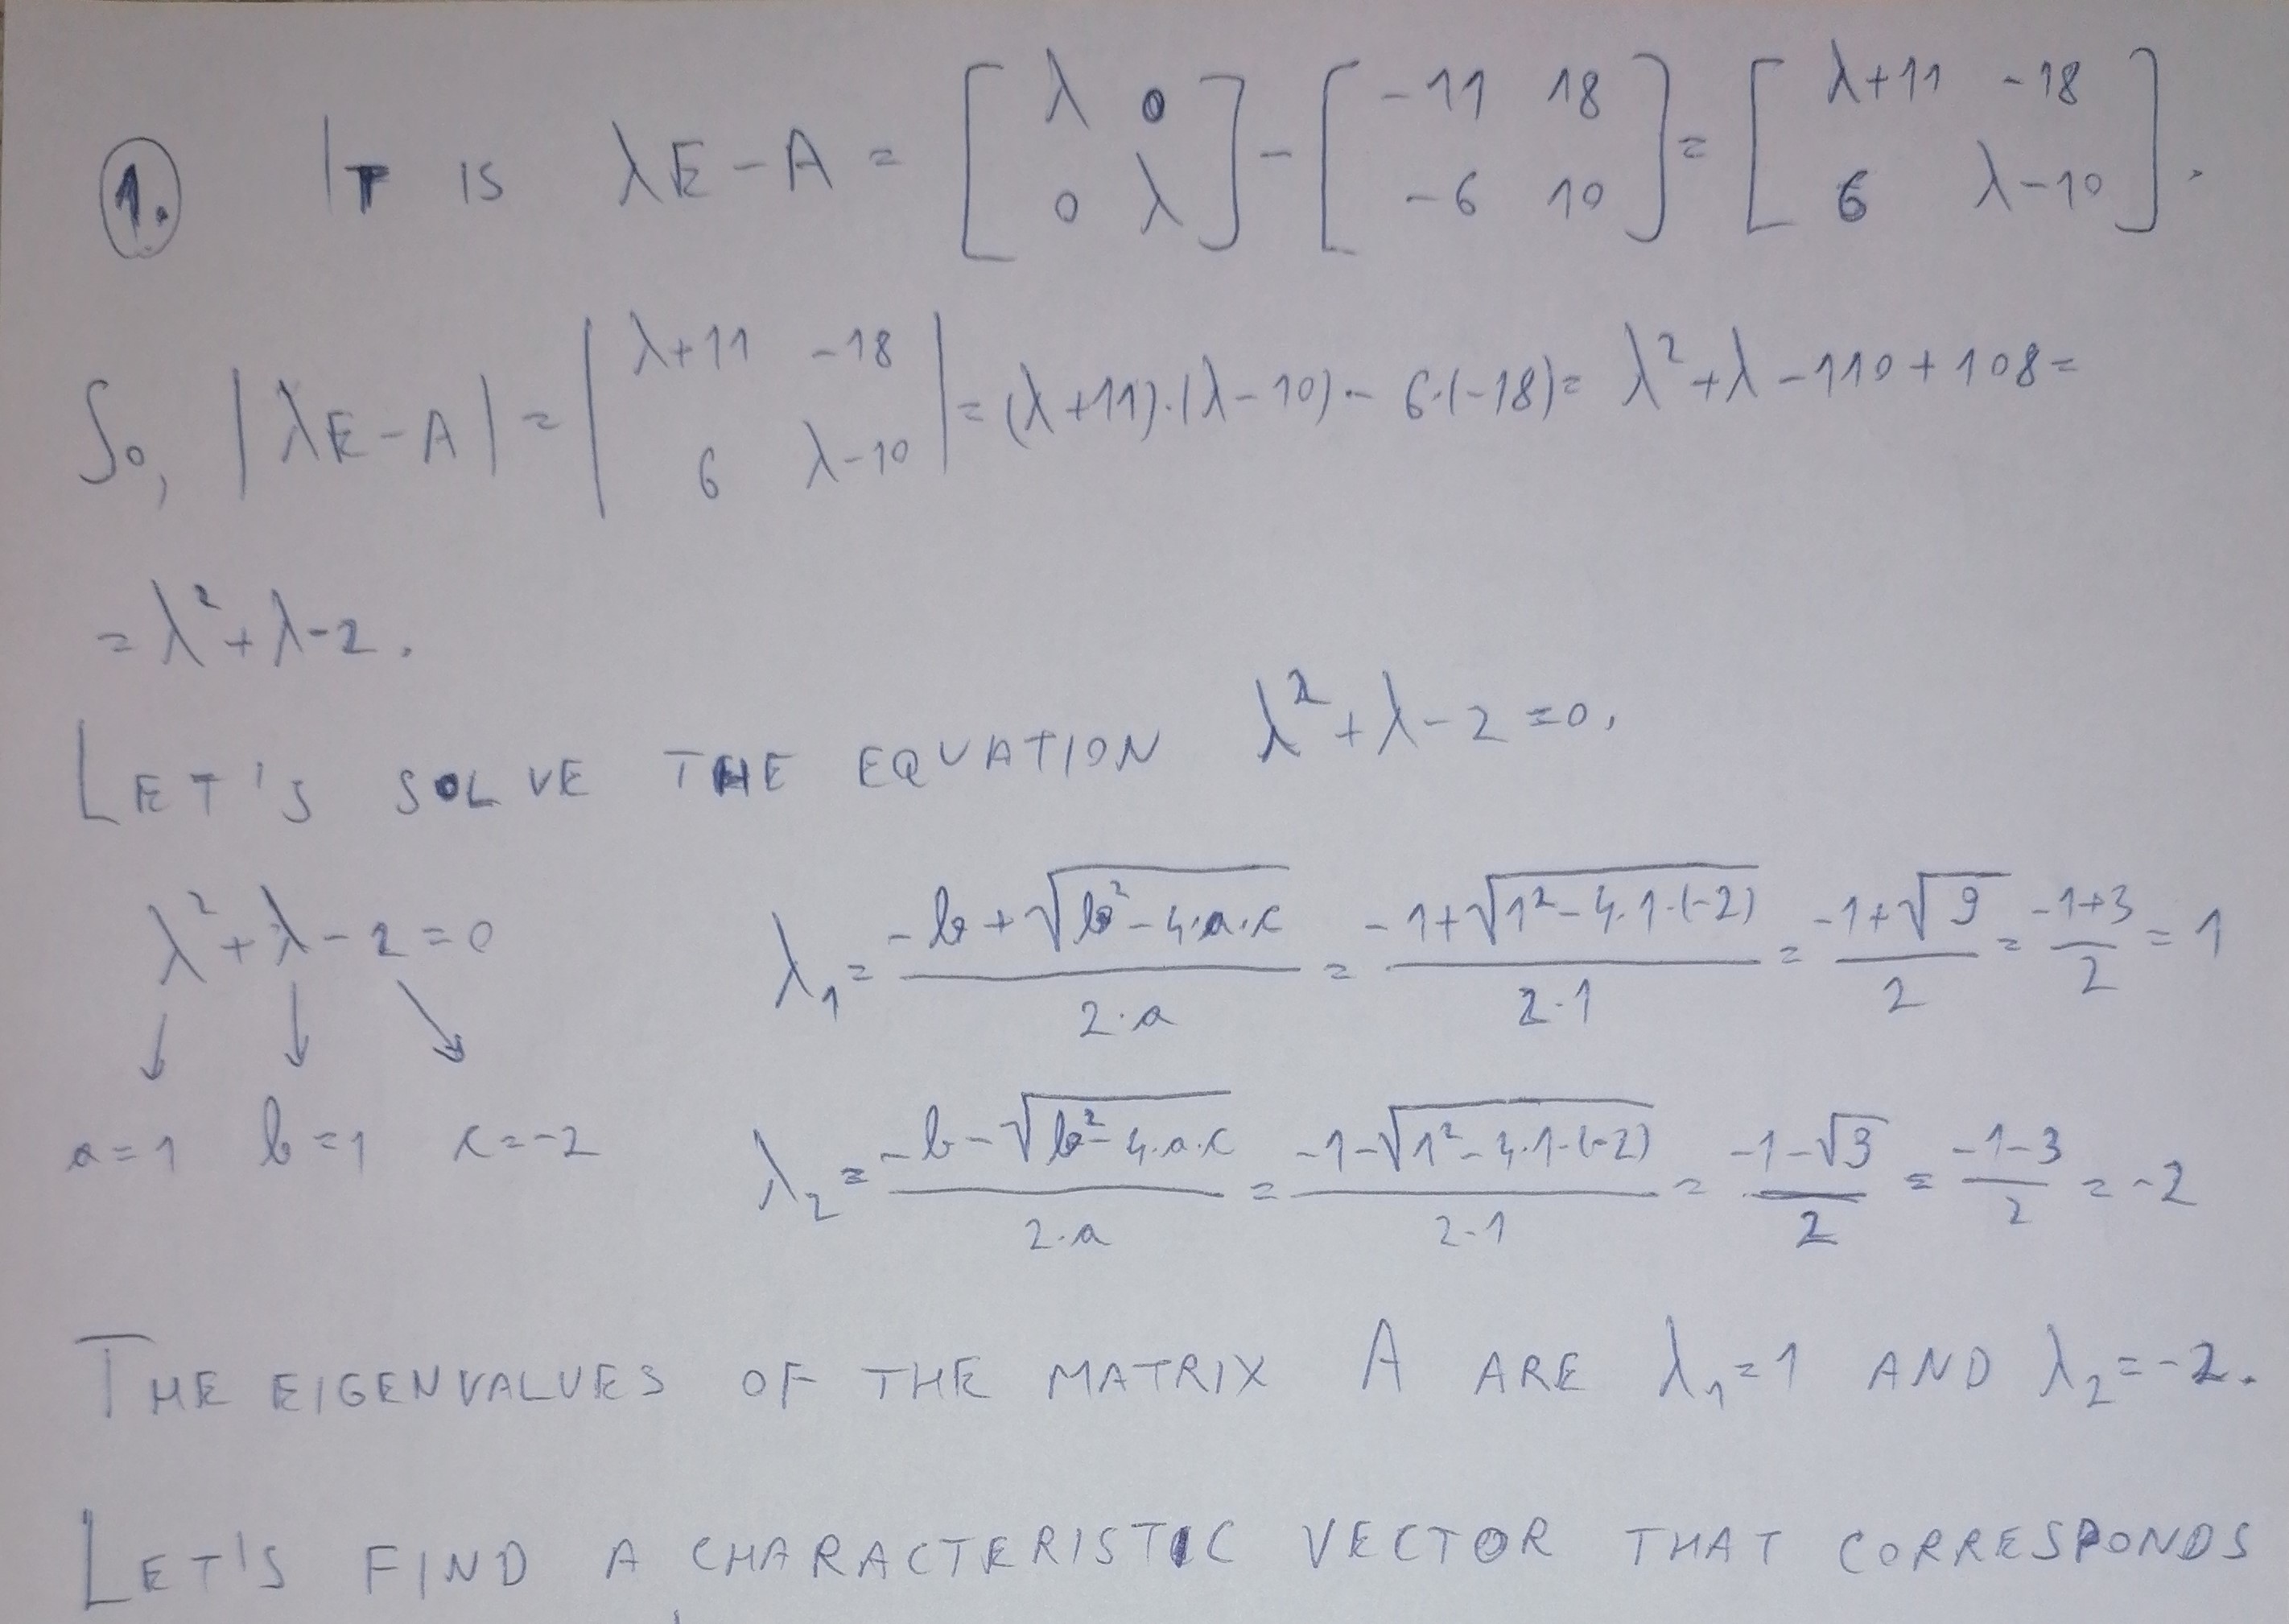 1. IT IS λE-A = [λ 0; 0 λ] - [-11 18; -6 10] = [λ+11 -18; 6 λ-10].
So, |λE-A| = |λ+11 -18; 6 λ-10| = (λ+11)·(λ-10) - 6·(-18) = λ²+λ-110+108 =
= λ²+λ-2.
LET'S SOLVE THE EQUATION λ²+λ-2=0.
λ²+λ-2=0
↓ ↓ ↘
a=1 b=1 c=-2
λ₁ = (-b+√(b²-4·a·c))/(2·a) = (-1+√(1²-4·1·(-2)))/(2·1) = (-1+√9)/2 = (-1+3)/2 = 1
λ₂ = (-b-√(b²-4·a·c))/(2·a) = (-1-√(1²-4·1·(-2)))/(2·1) = (-1-√9)/2 = (-1-3)/2 = -2
THE EIGENVALUES OF THE MATRIX A ARE λ₁=1 AND λ₂=-2.
LET'S FIND A CHARACTERISTIC VECTOR THAT CORRESPONDS